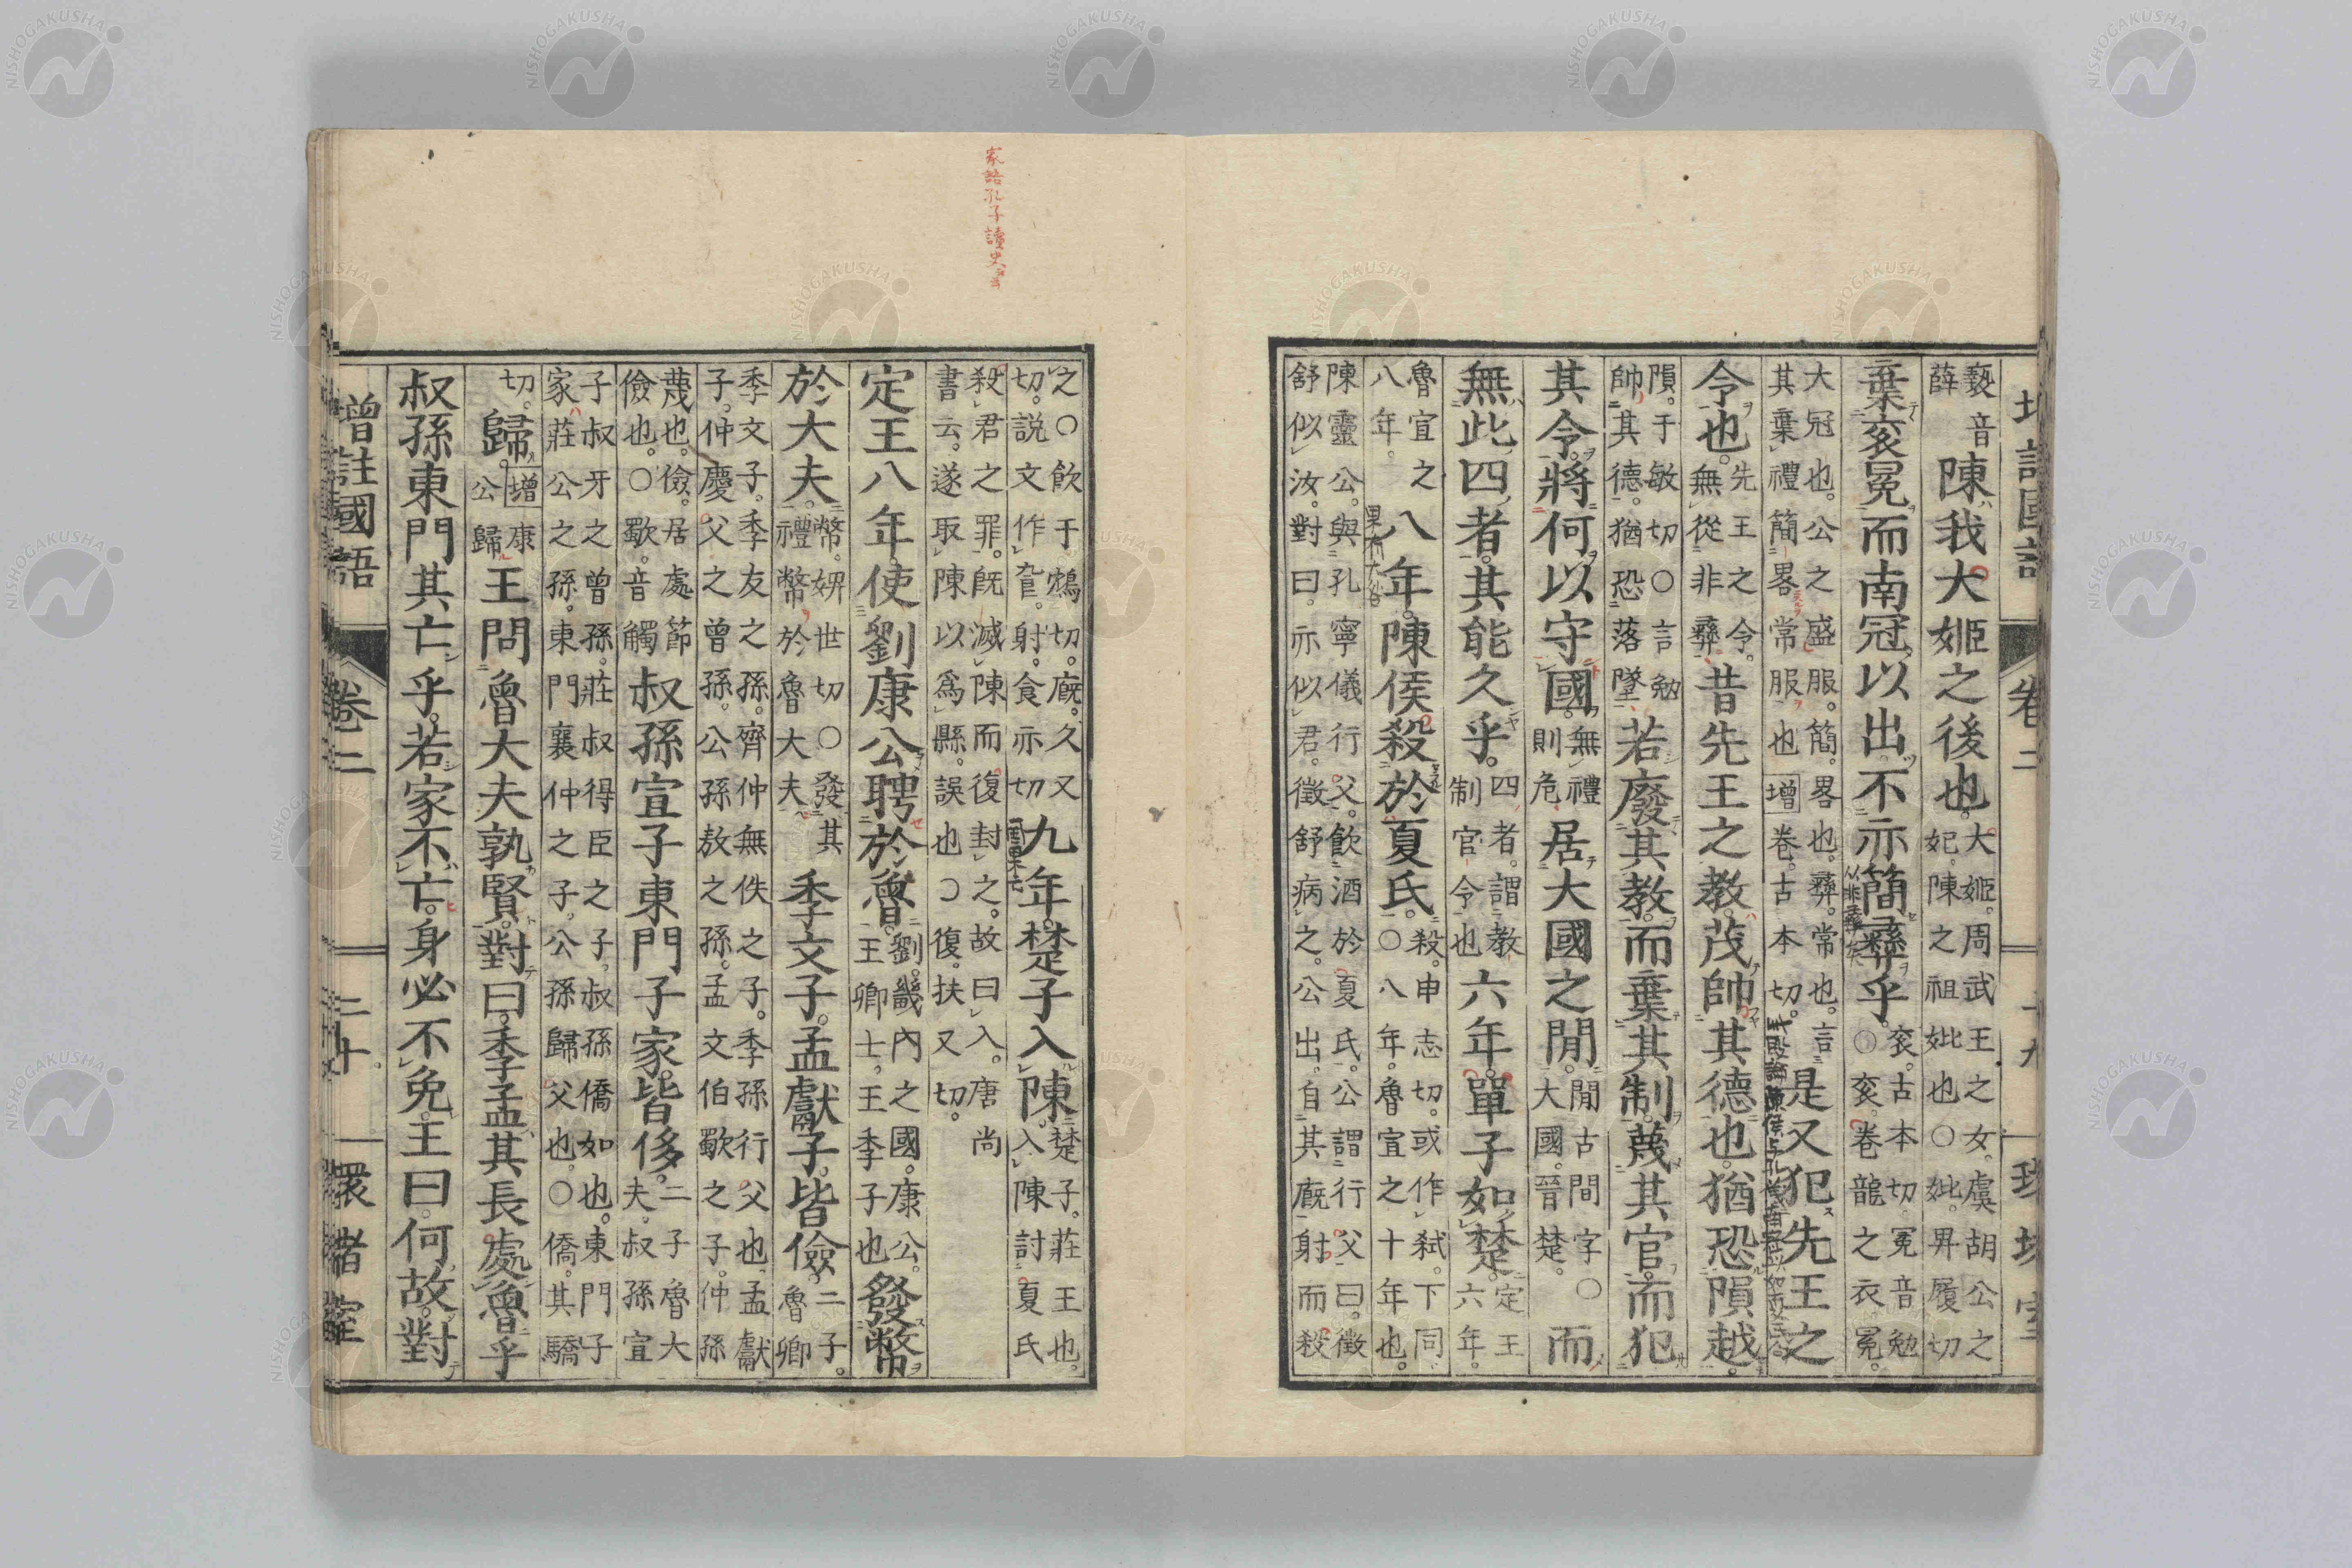 褻音
薛
陳我大姬之後也
大姬。周武王之女。虞胡公之
妃。陳之祖妣也○妣。畀履切
棄袞冕而南冠以出。不亦簡彝乎。
袞。古本切。冕音勉
○袞。卷龍之衣。冕。
大冠也。公之盛服。簡。畧也。彝。常也。言
其棄禮簡畧常服也 增 卷。古本切。
是又犯先王之
令也。
先王之令。
無從非彝
昔先王之教。茂帥其德也。猶恐隕越。
隕。于敏切○言勉
帥其德。猶恐落墜
若廢其教。而棄其制。蔑其官。而犯
其令。將何以守國。
無禮
則危
居大國之閒。
閒古間字○
大國。晉楚。
而
無此四者。其能久乎。
四者。謂教
制官令也
六年。單子如楚。
定王
六年。
魯宣之
八年。
八年。陳侯殺於夏氏。
殺。申志切。或作弒。下同
○八年。魯宣之十年也。
陳靈公。與孔寧儀行父。飲酒於夏氏。公謂行父曰。徵
舒似汝。對曰。亦似君。徵舒病之。公出。自其廐射而殺
之○飲于鴆切。廐。久又
切。說文作
射。食亦切
九年。楚子入陳。
楚子。莊王也。
入陳。討夏氏
殺君之罪。旣滅陳而復封之。故曰入。唐尚
書云。遂取陳以爲縣。誤也○復。扶又切。
定王八年。使劉康公聘於魯。
劉。畿內之國。康公。
王卿士。王季子也
發幣
於大夫。
幣。妍世切○發其
禮幣於魯大夫
季文子。孟獻子。皆儉。
二子。
魯卿
季文子。季友之孫。齊仲無佚之子。季孫行父也。孟獻
子。仲慶父之曾孫。公孫敖之孫。孟文伯歜之子。仲孫
蔑也。儉。居處節
儉也。○歜。音觸
叔孫宣子東門子家。皆侈。
二子魯大
夫。叔孫宣
子叔牙之曾孫。莊叔得臣之子。叔孫僑如也。東門子
家。莊公之孫。東門襄仲之子。公孫歸父也。○僑。其驕
切。
歸。
增康
公歸
王問魯大夫孰賢。對曰。季孟其長處魯乎
叔孫東門其亡乎。若家不亡。身必不免。王曰。何故。對
增註國語 卷二 二十 環堵室
家語孔子讀史